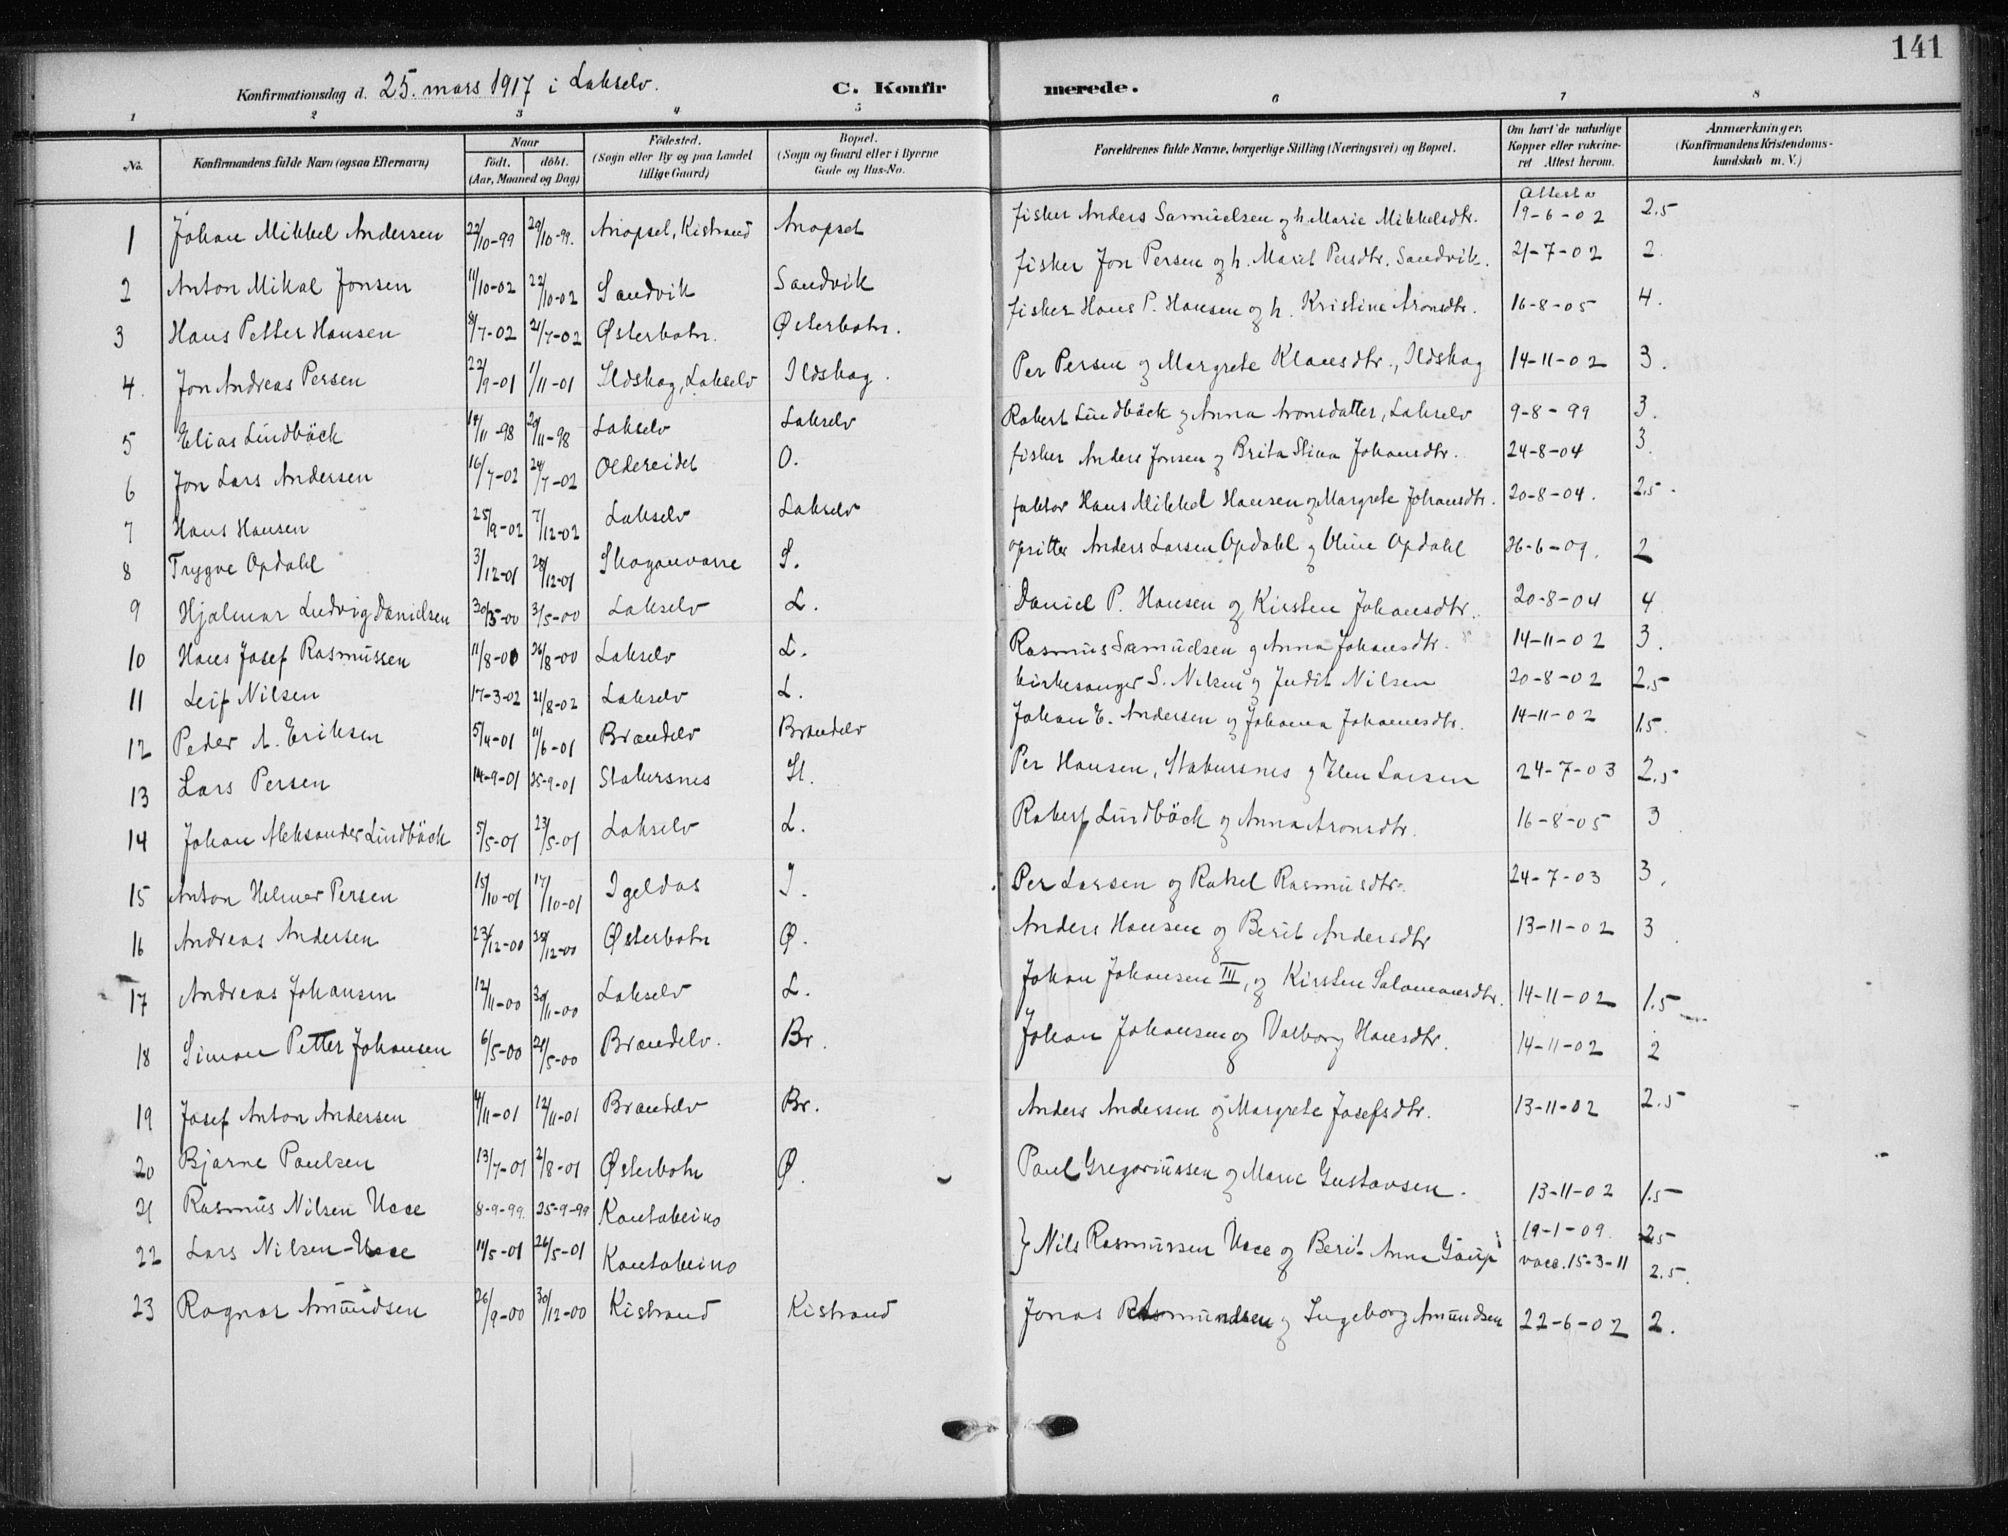 141
Konfirmationsdag d. 25. mars 1917 i Lakselv.
C. Konfirmerede.
1 2 3 4 5 6 7 8
No. Konfirmandens fulde Navn (ogsaa Efternavn) Naar födt. döbt. (Aar, Maaned og Dag) Födested. (Sogn eller By og paa Landet tillige Gaard) Bopæl. (Sogn og Gaard eller i Byerne Gade og Hus-No. Forældrenes fulde Navne, borgerlige Stilling (Næringsvei) og Bopæl. Om havt de naturlige Kopper eller vakcineret Attest herom. Anmærkninger. (Konfirmandens Kristendomskundskab m. V.)
1 Johan Mikkel Andersen 22/10-99 29/10-99. Anopset, Kistrand Anopset fisker Anders Samuelsen og h. Marie Mikkelsdtr. Attest av 19-6-02 2.5
2 Anton Mikal Jonsen 11/10-02 22/10-02 Sandvik Sandvik fisker Jon Persen og h. Marit Persdtr. Sandvik. 21-7-02 2.
3 Hans Petter Hansen 8/7-02 21/7-02 Østerbotn. Østerbotn. fisker Hans P. Hansen og h. Kristine Aronsdtr. 16-8-05 4.
4. Jon Andreas Persen 22/9-01 1/11-01 Ildskog, Lakselv Ildskog. Per Persen og Margrete Klausdtr., Ildskog 14-11-02 3.
5 Elias Lindbäck 14/11-98 20/11-98 Lakselv Lakselv Robert Lindbäck og Anna Aronsdatter, Lakselv 9-8-99 3.
6 Jon Lars Andersen 16/7-02 24/7-02 Oldereidet O. fisker Anders Jonsen og Brita Stina Johansdtr. 24-8-04 3.
7 Hans Hansen 25/9-02 7/12-02 Lakselv Lakselv faktor Hans Mikkel Hansen og Margrete Johansdtr. 20-8-04. 2.5.
8 Trygve Opdahl 3/12-01 28/12-01 Skoganvarre S. opsitter Anders Larsen Opdahl og Oline Opdahl 26-6-09. 2
9 Hjalmar Ludvig Danielsen 30/3-00 3/5-00 Lakselv L. Daniel P. Hansen og Kirsten Johansdtr. 20-8-04 4
10 Hans Josef Rasmussen 11/8-00 26/8-00 Lakselv L. Rasmus Samuelsen og Anna Johansdtr. 14-11-02 3.
11 Leif Nilsen 17-3-02 21/8-02 Lakselv L. kirkesanger S. Nilsen og Judit Nilsen 20-8-02 2.5
12 Peder A. Eriksen 5/4-01 11/6-01 Brændelv Brændelv Johan E. Andersen og Johanna Johannesdtr. 14-11-02 1.5.
13 Lars Persen 14-9-01 25-9-01 Stabursnes St. Per Hansen, Stabursnes og Elen Larsen 24-7-03 2.5
14 Johan Aleksander Lindbäck 5/5-01 23/5-01 Lakselv L. Robert Lindbäck og Anna Aronsdtr. 16-8-05 3
15 Anton Helmer Persen 15/10-01 17/10-01 Igeldas I. Per Larsen og Rakel Rasmusdtr. 24-7-03 3.
16 Andreas Andersen 23/12-00 25/12-00 Østerbotn Ø. Anders Hansen og Berit Andersdtr 13-11-02 3
17 Andreas Johansen 12/11-00 30/11-00 Lakselv L. Johan Johansen III, og Kirsten Salomonsdtr. 14-11-02 1.5
18 Simon Petter Johansen 6/5-00 24/5-00 Brændelv. Br. Johan Johansen og Valborg Hansdtr. 14-11-02 2
19 Josef Anton Andersen 4/11-01 12/11-01 Brændelv Br. Anders Andersen og Margrete Josefsdtr. 13-11-02 2.5
20 Bjarne Paulsen 13/7-01 2/8-01 Østerbotn Ø. Paul Gregoriussen og Marie Gustavsen. 13-11-02 1.5
21 Rasmus Nilsen Uece 8-9-99. 25-9-99 Kautokeino } Nils Rasmussen Uece og Berit Anna Gaup 19-1-09. 2.5
22 Lars Nilsen-Uece 11/5-01 26/5-01 Kautokeino vacc. 15-3-11 2.5.
23 Ragnar Amundsen 26/9-00 30/12-00 Kistrand Kistrand Jonas Rasmundsen og Ingeborg Amundsen 22-6-02 2.